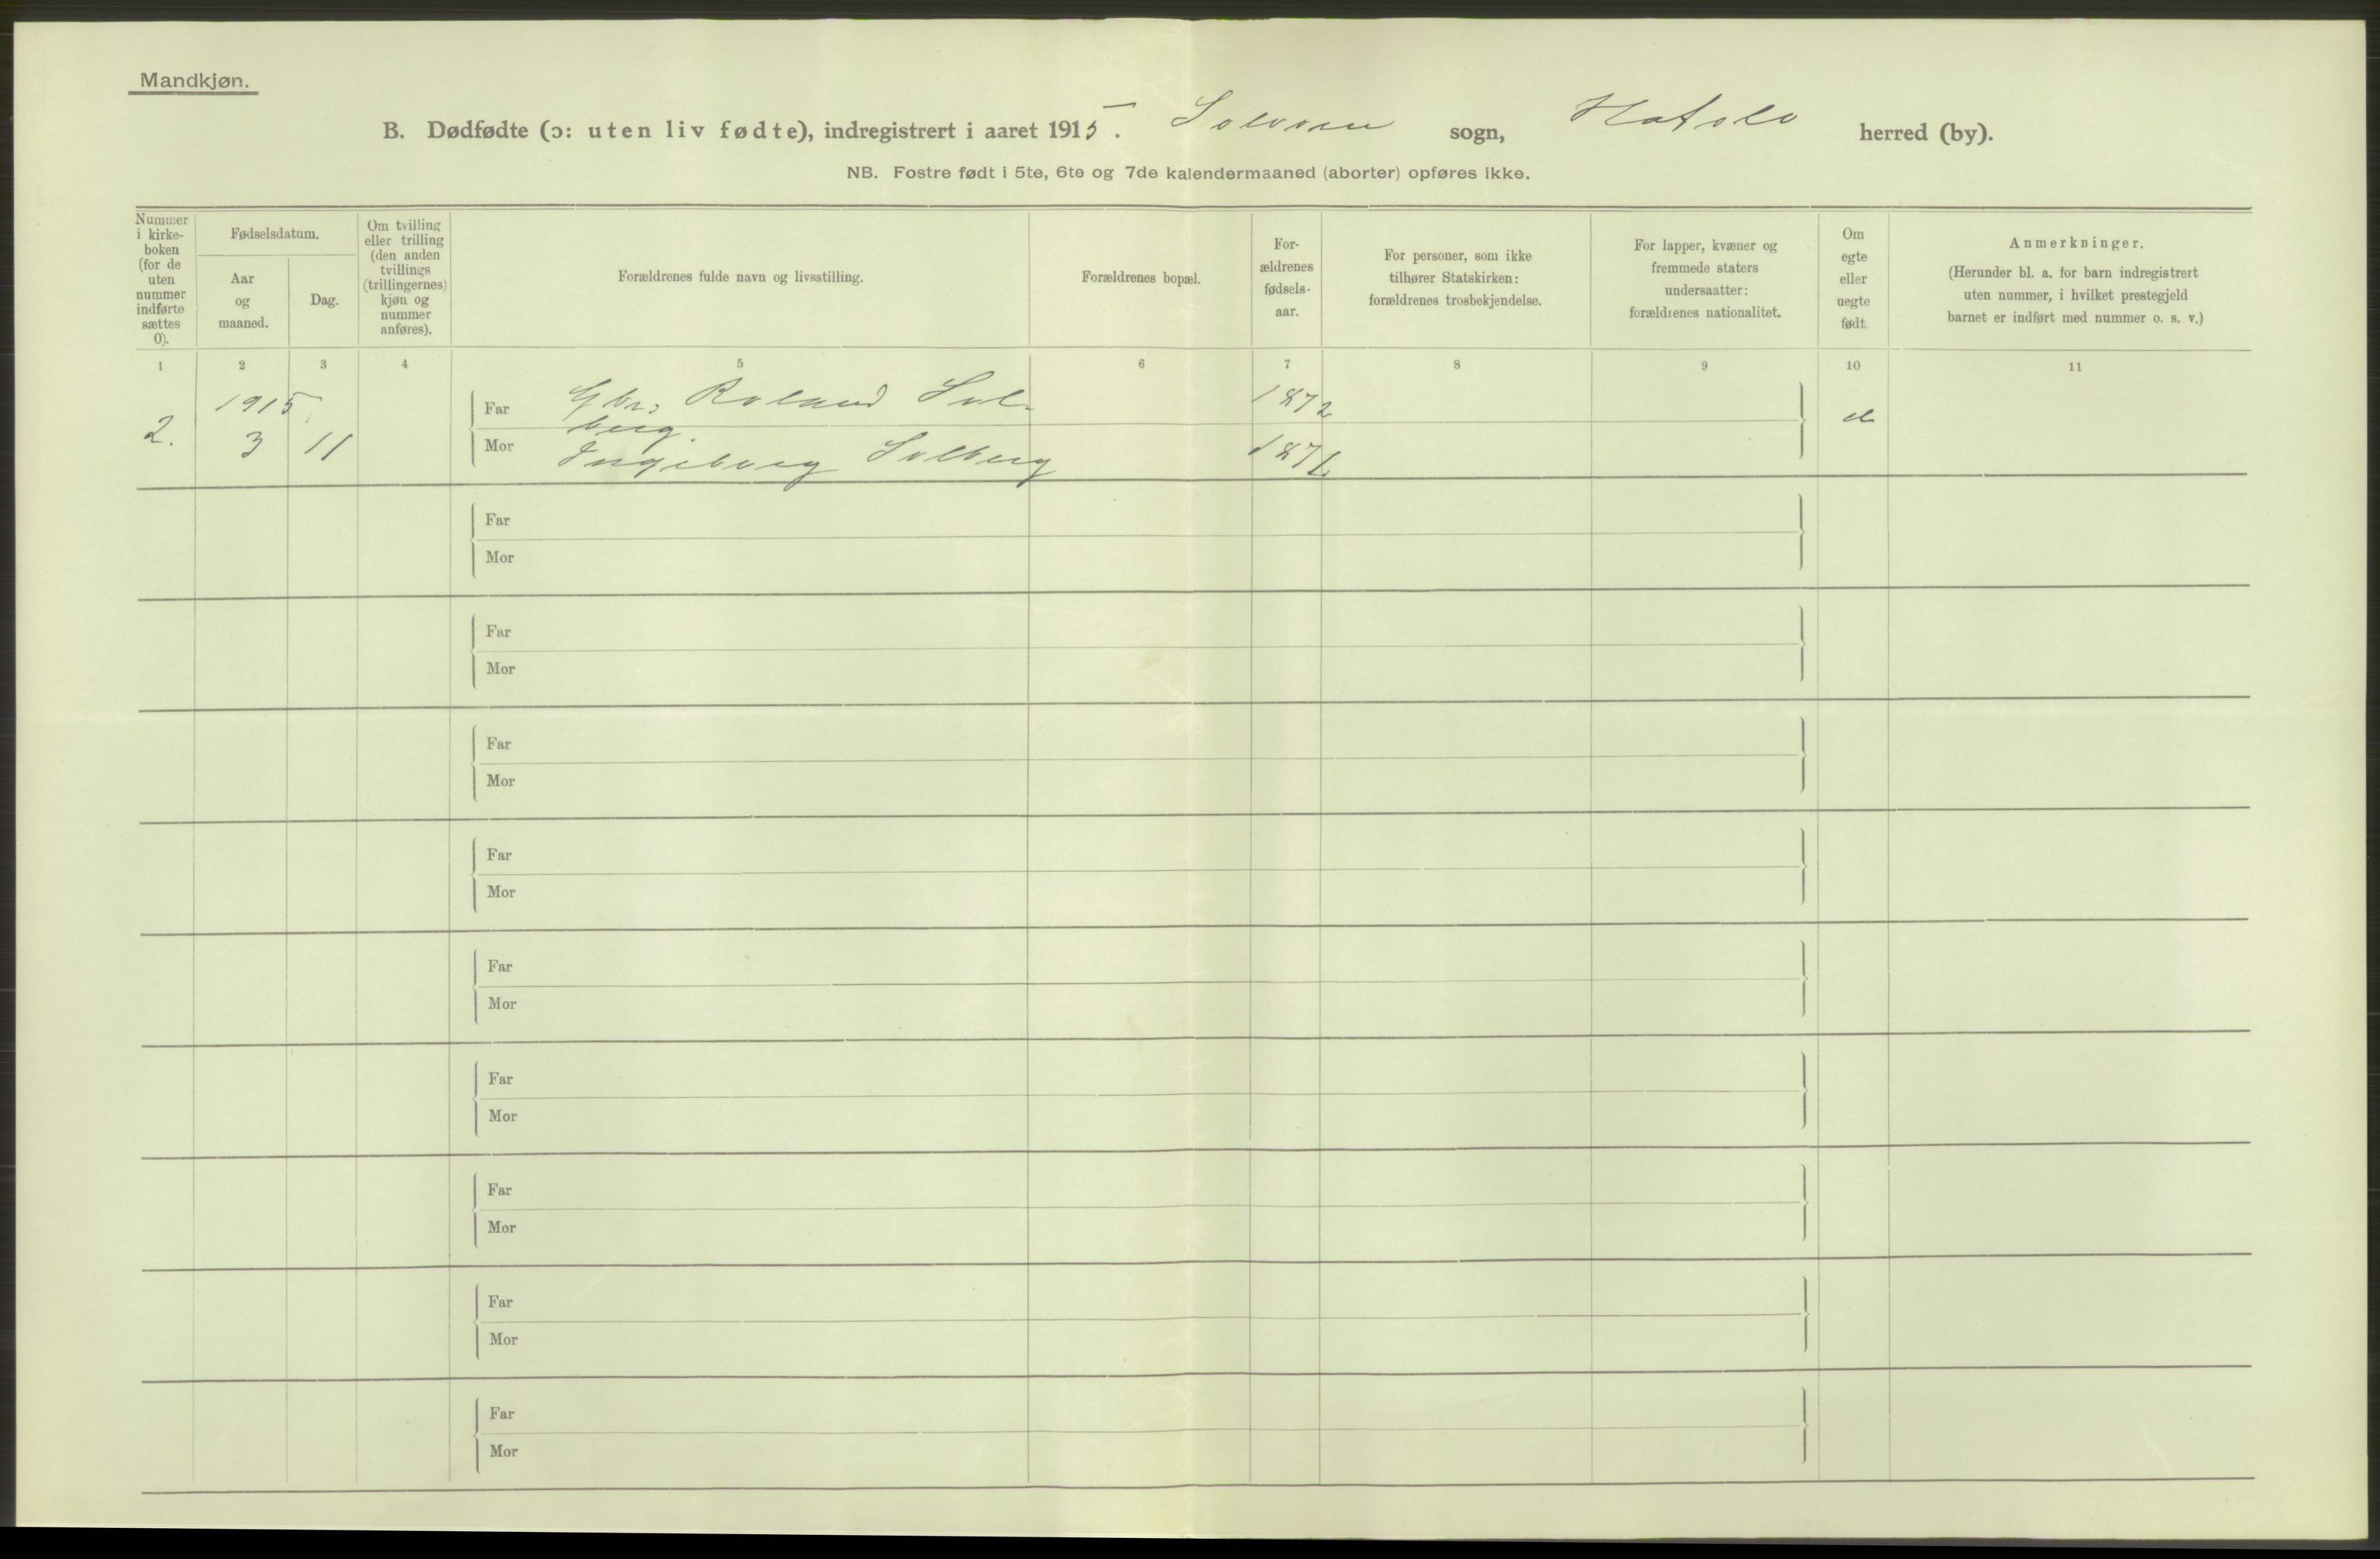 Mandkjøn.
B. Dødfødte (ɔ: uten liv fødte), indregistrert i aaret 1915. Solvorn sogn, Hafslo herred (by).
NB. Fostre født i 5te, 6te og 7de kalendermaaned (aborter) opføres ikke.
Nummer
i kirke-
boken
(for de
uten
nummer
indførte
sættes
0).
Fødselsdatum.
Aar
og
maaned.
Dag.
Om tvilling
eller trilling
(den anden
tvillings
(trillingernes)
kjøn og
nummer
anføres).
Forældrenes fulde navn og livsstilling.
Forældrenes bopæl.
For-
ældrenes
fødsels-
aar.
For personer, som ikke
tilhører Statskirken:
forældrenes trosbekjendelse.
For lapper, kvæner og
fremmede staters
undersaatter:
forældrenes nationalitet.
Om
egte
eller
uegte
født.
Anmerkninger.
(Herunder bl. a. for barn indregistrert
uten nummer, i hvilket prestegjeld
barnet er indført med nummer o. s. v.)
1 2 3 4 5 6 7 8 9 10 11
1915 Far Gbr. Roland Sol- 1872 e
berg.
2. 3 11 Mor Ingeborg Solberg
Far
Mor
Far
Mor
Far
Mor
Far
Mor
Far
Mor
Far
Mor
Far
Mor
Far
Mor
Far
Mor